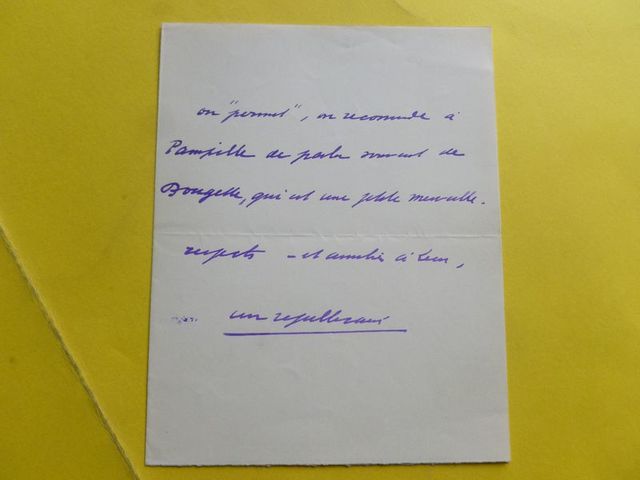 on "permet", on recommande à
Pampille de parler souvent de
Bougette, qui est une petite merveille.
respects – et amitiés à Léon,
un républicain